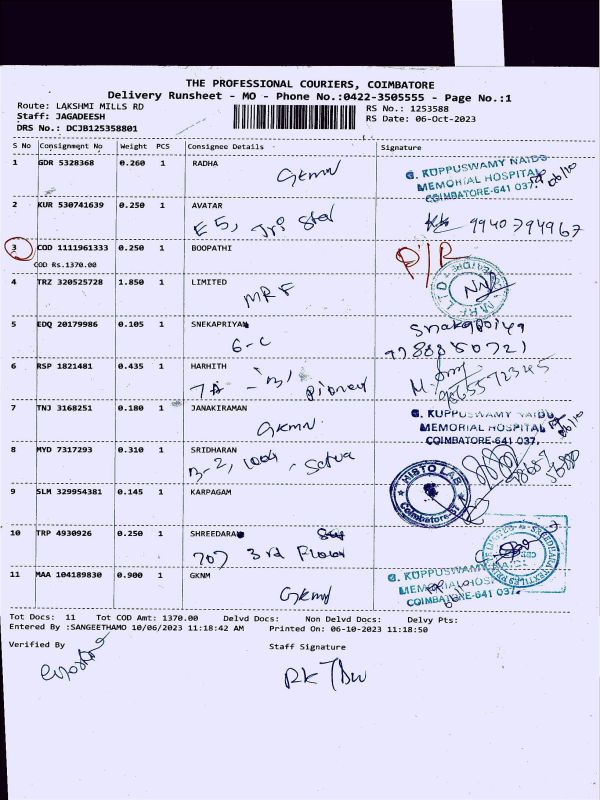 THE PROFESSIONAL COURIERS, COIMBATORE
Delivery Runsheet - MO - Phone No.:0422-3505555 - Page No.:1
Route: LAKSHMI MILLS RD
RS No.: 1253588
Staff: JAGADEESH
RS Date: 06-Oct-2023
DRS No.: DCJB125358801
S No Consignment No Weight PCS Consignee Details Signature
1 GDR 5328368 0.260 1 RADHA
GKMN
G. KUPPUSWAMY NAIDU
MEMORIAL HOSPITAL
COIMBATORE-641 037.
2 KUR 530741639 0.250 1 AVATAR
E5, Tri Star
9940794967
3 COD 1111961333 0.250 1 BOOPATHI
COD Rs.1370.00
P/R
4 TRZ 320525728 1.850 1 LIMITED
MRF
MRF LTD
5 EDQ 20179986 0.105 1 SNEKAPRIYA
6-C
Snekapriya
9788850721
6 RSP 1821481 0.435 1 HARHITH
Pioneer
7 TNJ 3168251 0.180 1 JANAKIRAMAN
GKMN
G. KUPPUSWAMY NAIDU
MEMORIAL HOSPITAL
COIMBATORE-641 037.
8 MYD 7317293 0.310 1 SRIDHARAN
9 SLM 329954381 0.145 1 KARPAGAM
HISTO LAB
Coimbatore
10 TRP 4930926 0.250 1 SHREEDARA
707 3rd Floor
11 MAA 104189830 0.900 1 GKNM
GKMN
G. KUPPUSWAMY NAIDU
MEMORIAL HOSPITAL
COIMBATORE-641 037.
Tot Docs: 11 Tot COD Amt: 1370.00 Delvd Docs: Non Delvd Docs: Delvy Pts:
Entered By :SANGEETHAMO 10/06/2023 11:18:42 AM Printed On: 06-10-2023 11:18:50
Verified By
Staff Signature